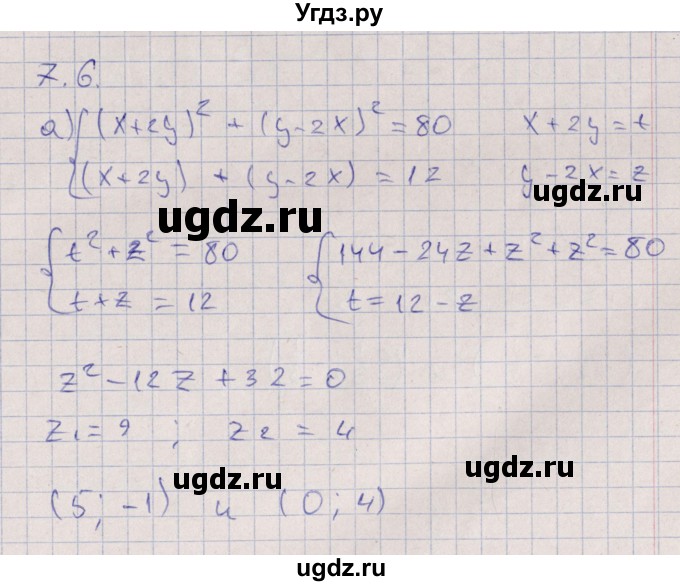 Угдз.ру
7.6.
а) { (x+2y)² + (y-2x)² = 80    x+2y=t
(x+2y) + (y-2x) = 12    y-2x=z
ugdz.ru
ugdz.ru
{ t²+z² = 80    { 144-24z+z²+z²=80
t+z = 12    t=12-z
ugdz.ru
z²-12z+32=0
z₁=9 ; z₂ = 4
ugdz.ru
ugdz.ru
(5; -1) и (0; 4)
ugdz.ru